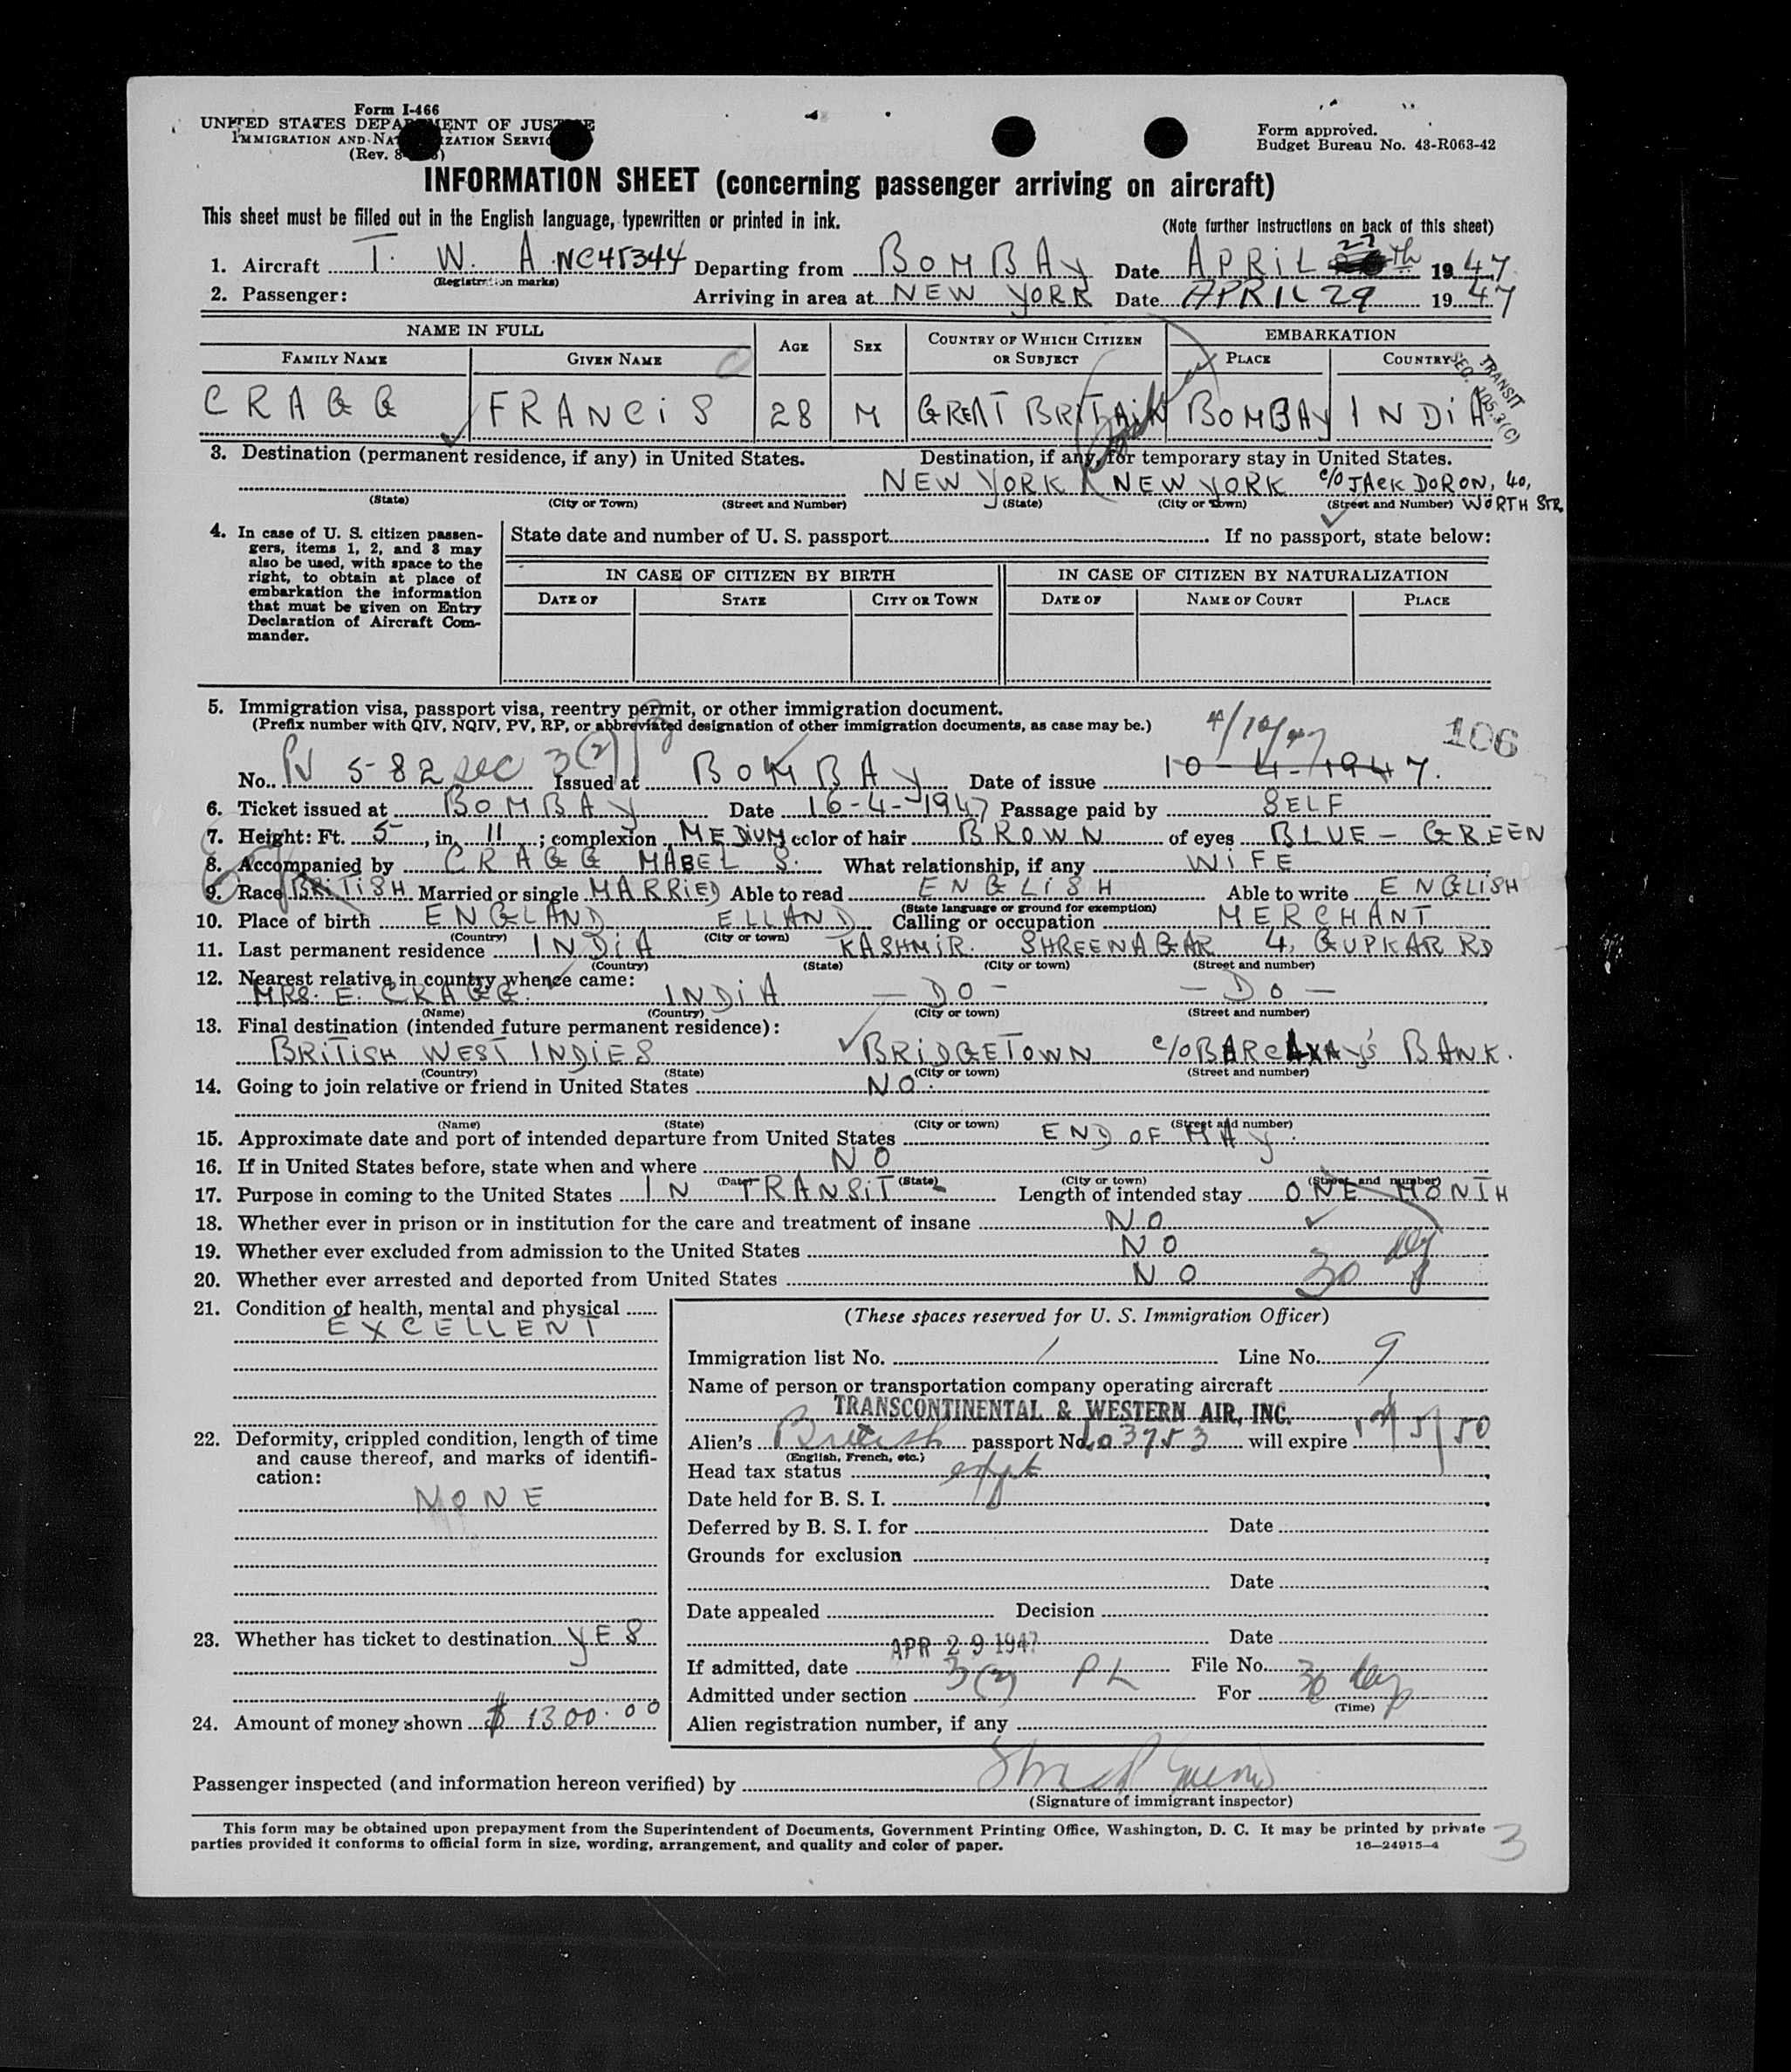 Form I-466
UNITED STATES DEPARTMENT OF JUSTICE
IMMIGRATION AND NATURALIZATION SERVICE
(Rev. 8
Form approved.
Budget Bureau No. 43-R063-42
INFORMATION SHEET (concerning passenger arriving on aircraft)
This sheet must be filled out in the English language, typewritten or printed in ink. (Note further instructions on back of this sheet)
1. Aircraft T. W. A. NC45344 Departing from BOMBAY Date APRIL 27th 1947
(Registration marks)
2. Passenger: Arriving in area at NEW YORK Date APRIL 29 1947
NAME IN FULL AGE SEX COUNTRY OF WHICH CITIZEN OR SUBJECT EMBARKATION
FAMILY NAME GIVEN NAME PLACE COUNTRY
TRANSIT
SEC. 105.3(C)
CRAGG FRANCIS 28 M GREAT BRITAIN BOMBAY INDIA
3. Destination (permanent residence, if any) in United States. Destination, if any, for temporary stay in United States.
NEW YORK NEW YORK c/o JACK DORON, 40,
(State) (City or Town) (Street and Number) (State) (City or Town) (Street and Number) WORTH STR.
4. In case of U. S. citizen passen-
gers, items 1, 2, and 3 may
also be used, with space to the
right, to obtain at place of
embarkation the information
that must be given on Entry
Declaration of Aircraft Com-
mander.
State date and number of U. S. passport If no passport, state below:
IN CASE OF CITIZEN BY BIRTH IN CASE OF CITIZEN BY NATURALIZATION
DATE OF STATE CITY OR TOWN DATE OF NAME OF COURT PLACE
5. Immigration visa, passport visa, reentry permit, or other immigration document.
(Prefix number with QIV, NQIV, PV, RP, or abbreviated designation of other immigration documents, as case may be.)
4/10/47 106
No. PV 582 sec 3(2) Issued at BOMBAY Date of issue 10-4-1947.
6. Ticket issued at BOMBAY Date 16-4-1947 Passage paid by SELF
7. Height: Ft. 5, in. 11; complexion MEDIUM color of hair BROWN of eyes BLUE-GREEN
8. Accompanied by CRAGG MABEL S. What relationship, if any WIFE
9. Race BRITISH Married or single MARRIED Able to read ENGLISH Able to write ENGLISH
(State language or ground for exemption)
10. Place of birth ENGLAND ELLAND Calling or occupation MERCHANT
(Country) (City or town)
11. Last permanent residence INDIA KASHMIR. SHREENAGAR 4, GUPKAR RD
(Country) (State) (City or town) (Street and number)
12. Nearest relative in country whence came:
MRS. E. CRAGG. INDIA -DO- -DO-
(Name) (Country) (City or town) (Street and number)
13. Final destination (intended future permanent residence):
BRITISH WEST INDIES BRIDGETOWN c/o BARCLAY'S BANK.
(Country) (State) (City or town) (Street and number)
14. Going to join relative or friend in United States NO.
(Name) (State) (City or town) (Street and number)
15. Approximate date and port of intended departure from United States END OF MAY.
16. If in United States before, state when and where NO
(Date) (State) (City or town) (Street and number)
17. Purpose in coming to the United States IN TRANSIT Length of intended stay ONE MONTH
18. Whether ever in prison or in institution for the care and treatment of insane NO
19. Whether ever excluded from admission to the United States NO
20. Whether ever arrested and deported from United States NO 30
21. Condition of health, mental and physical
EXCELLENT
22. Deformity, crippled condition, length of time
and cause thereof, and marks of identifi-
cation:
NONE
23. Whether has ticket to destination YES
24. Amount of money shown $ 1300.00
(These spaces reserved for U. S. Immigration Officer)
Immigration list No. 1 Line No. 9
Name of person or transportation company operating aircraft
TRANSCONTINENTAL & WESTERN AIR, INC.
Alien's British passport No. 03753 will expire /5/50
(English, French, etc.)
Head tax status exmpt
Date held for B. S. I.
Deferred by B. S. I. for Date
Grounds for exclusion
Date
Date appealed Decision
Date
If admitted, date APR 29 1947 File No.
Admitted under section 3(2) PL For 30 days
(Time)
Alien registration number, if any
Passenger inspected (and information hereon verified) by
(Signature of immigrant inspector)
This form may be obtained upon prepayment from the Superintendent of Documents, Government Printing Office, Washington, D. C. It may be printed by private
parties provided it conforms to official form in size, wording, arrangement, and quality and color of paper. 16—24915-4
3